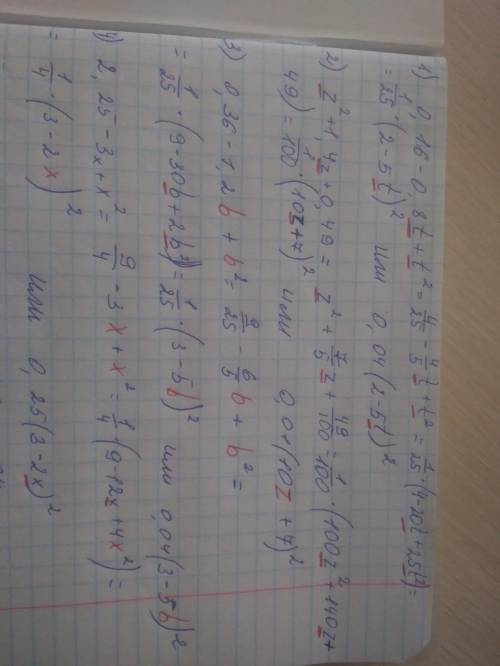 1) 0,16-0,8t+t²=4/25-4/5t+t²=1/25·(4-20t+25t²)=
=1/25·(2-5t)² или 0,04(2-5t)²
2) z²+1,4z+0,49= z²+7/5z+49/100=1/100·(100z²+140z+
49)=1/100·(10z+7)² или 0,01(10z+7)²
3) 0,36-1,2b+b²=9/25-6/5b+b²=
=1/25·(9-30b+2b²)=1/25·(3-5b)² или 0,04(3-5b)²
4) 2,25-3x+x²=9/4-3x+x²=1/4(9-12x+4x²)=
=1/4·(3-2x)² или 0,25(3-2x)²